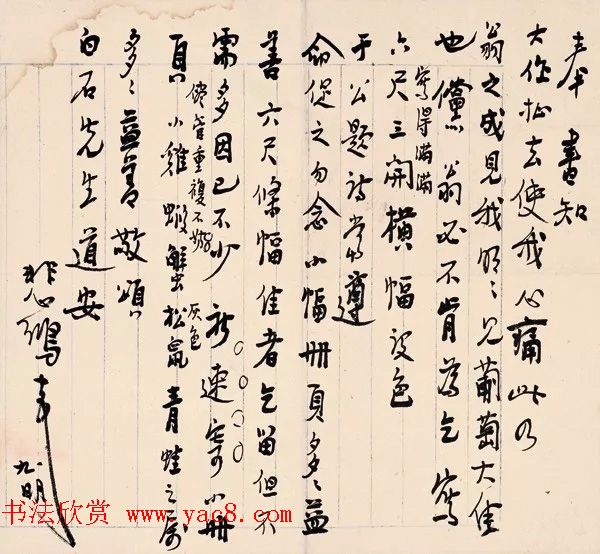 奉書知
大作扯去使我心痛此乃
翁之成見我明々見葡萄大佳
也儻翁必不肯為乞寫
寫得滿滿
六尺三開橫幅設色
于公題詩當遵
命促之勿念小幅冊頁多々益
善六尺條幅佳者乞留但不
需多因已不少祈速寄小冊
儘管重複不妨
頁小雞蝦蟹灰色松鼠青蛙之屬
多々益善敬頌
白石先生道安
悲鴻
书法欣赏 www.yac8.com